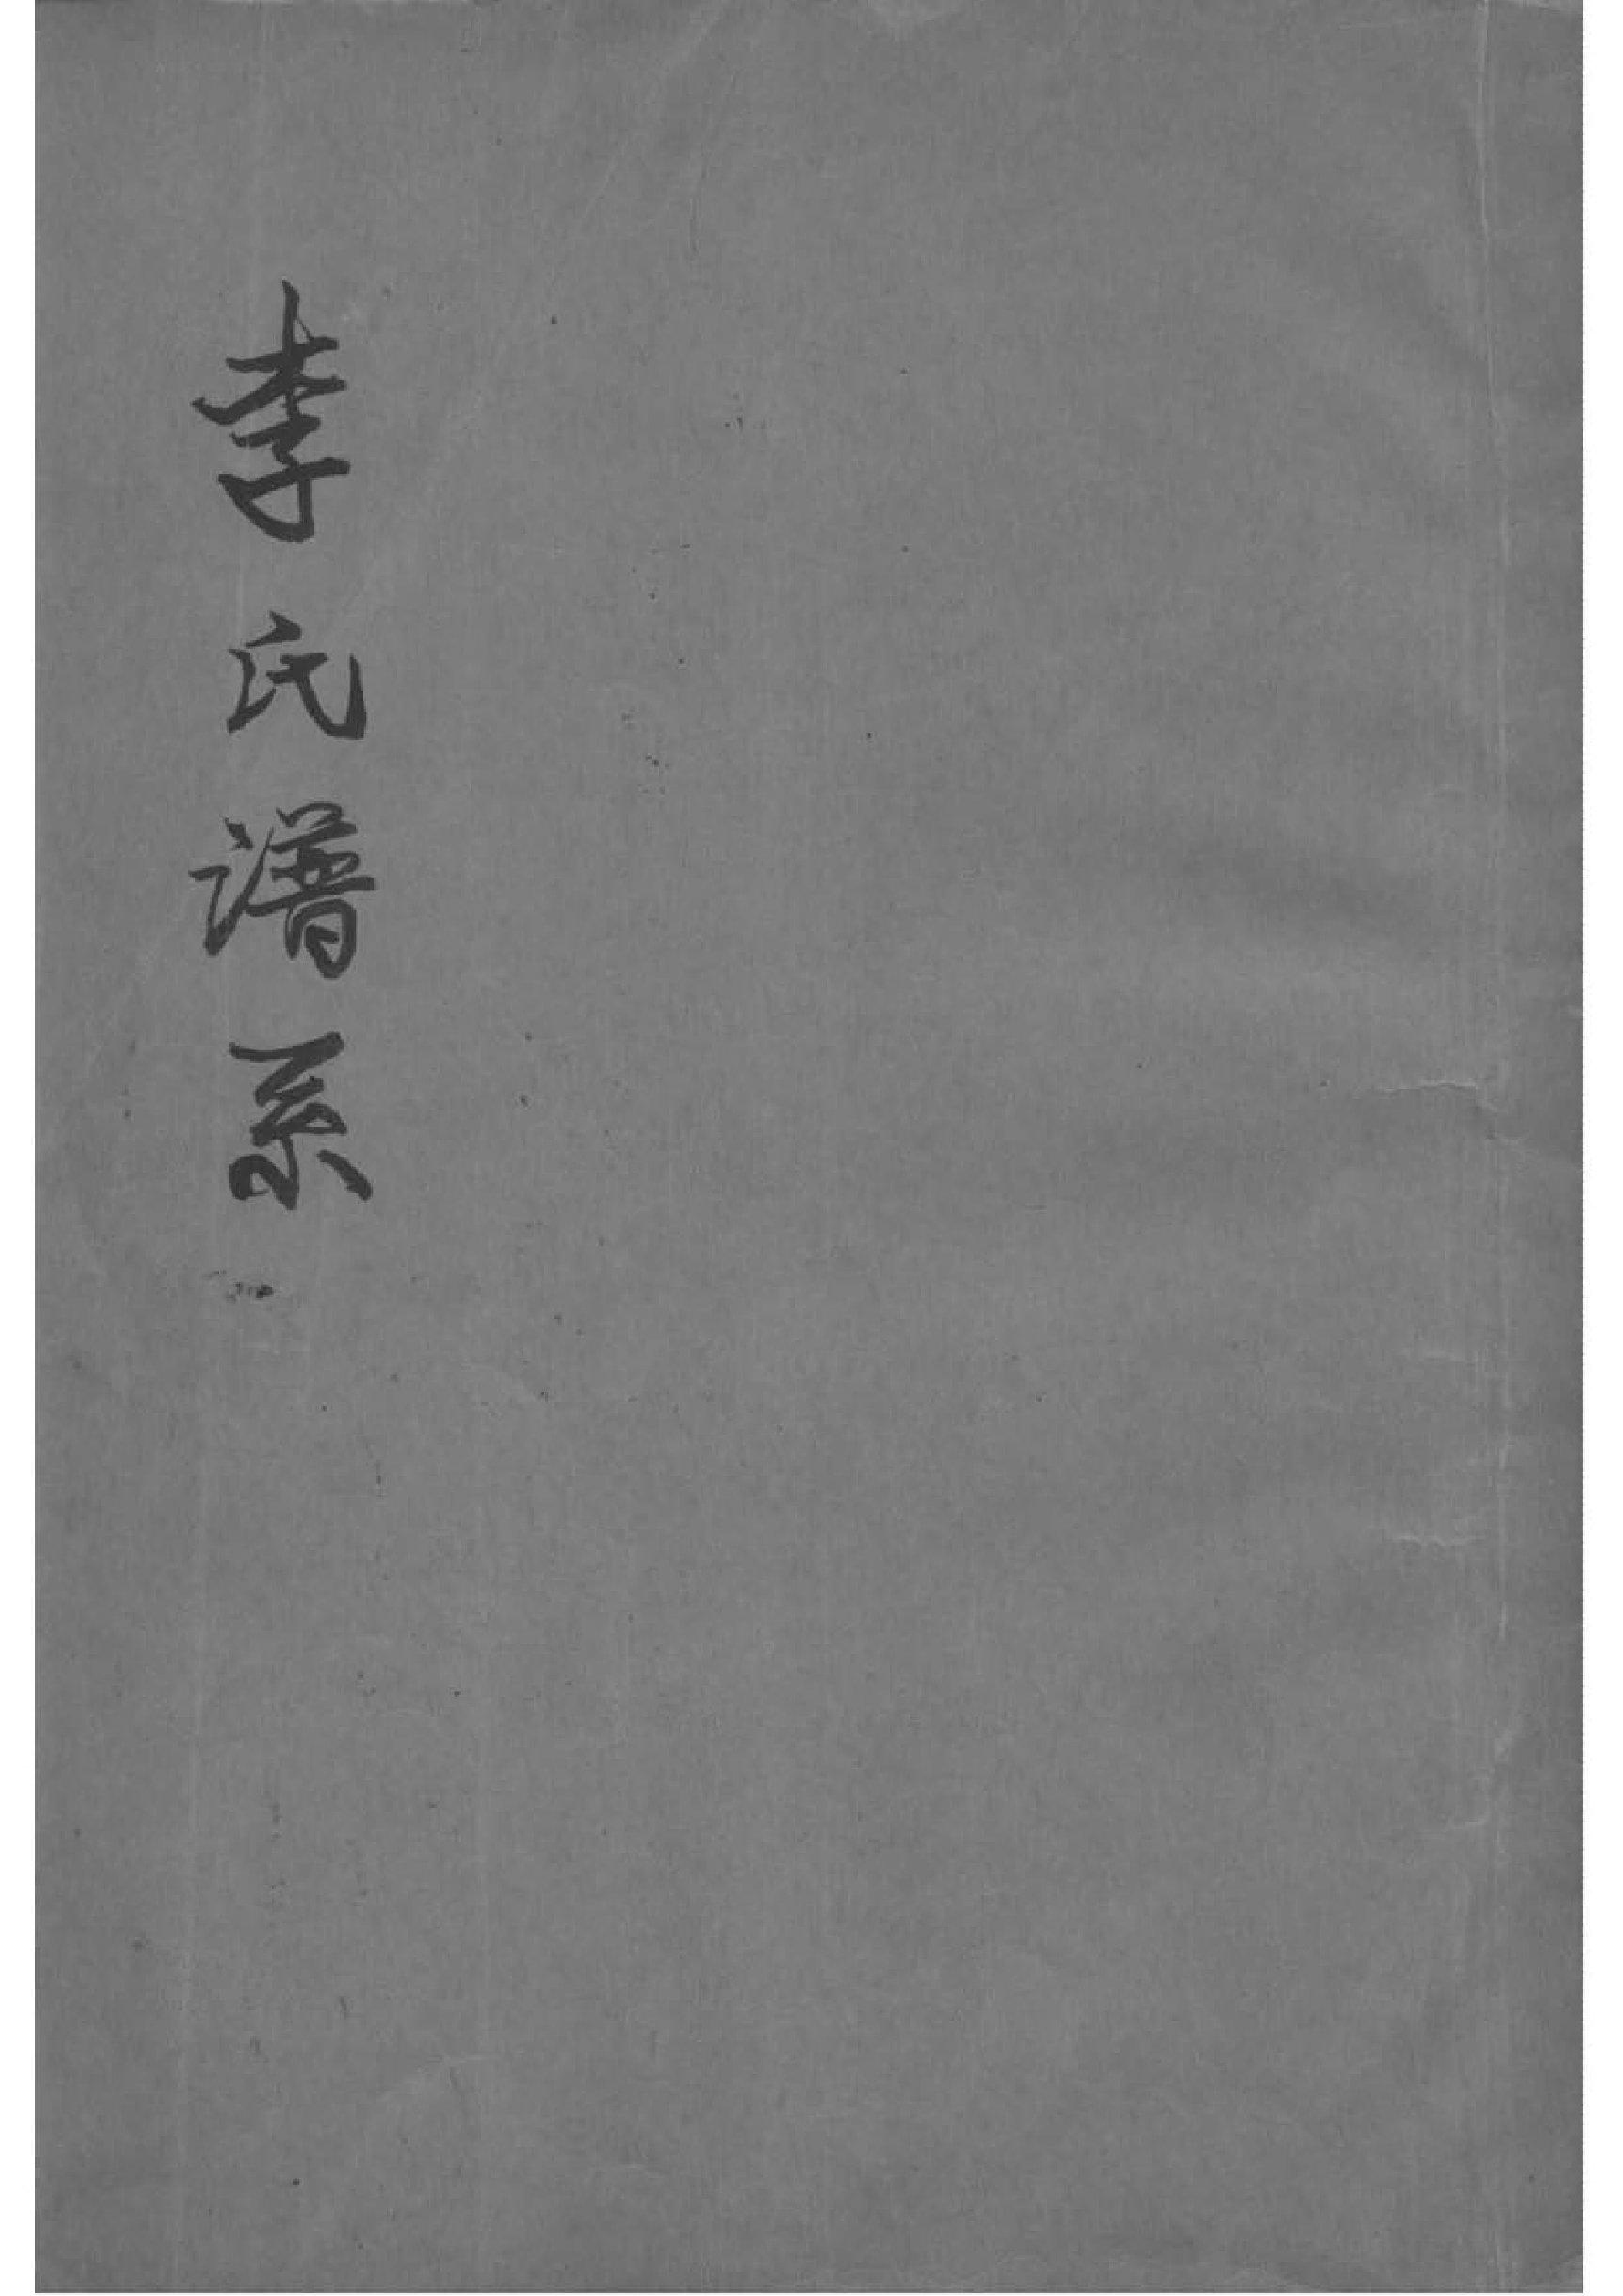 李氏譜系